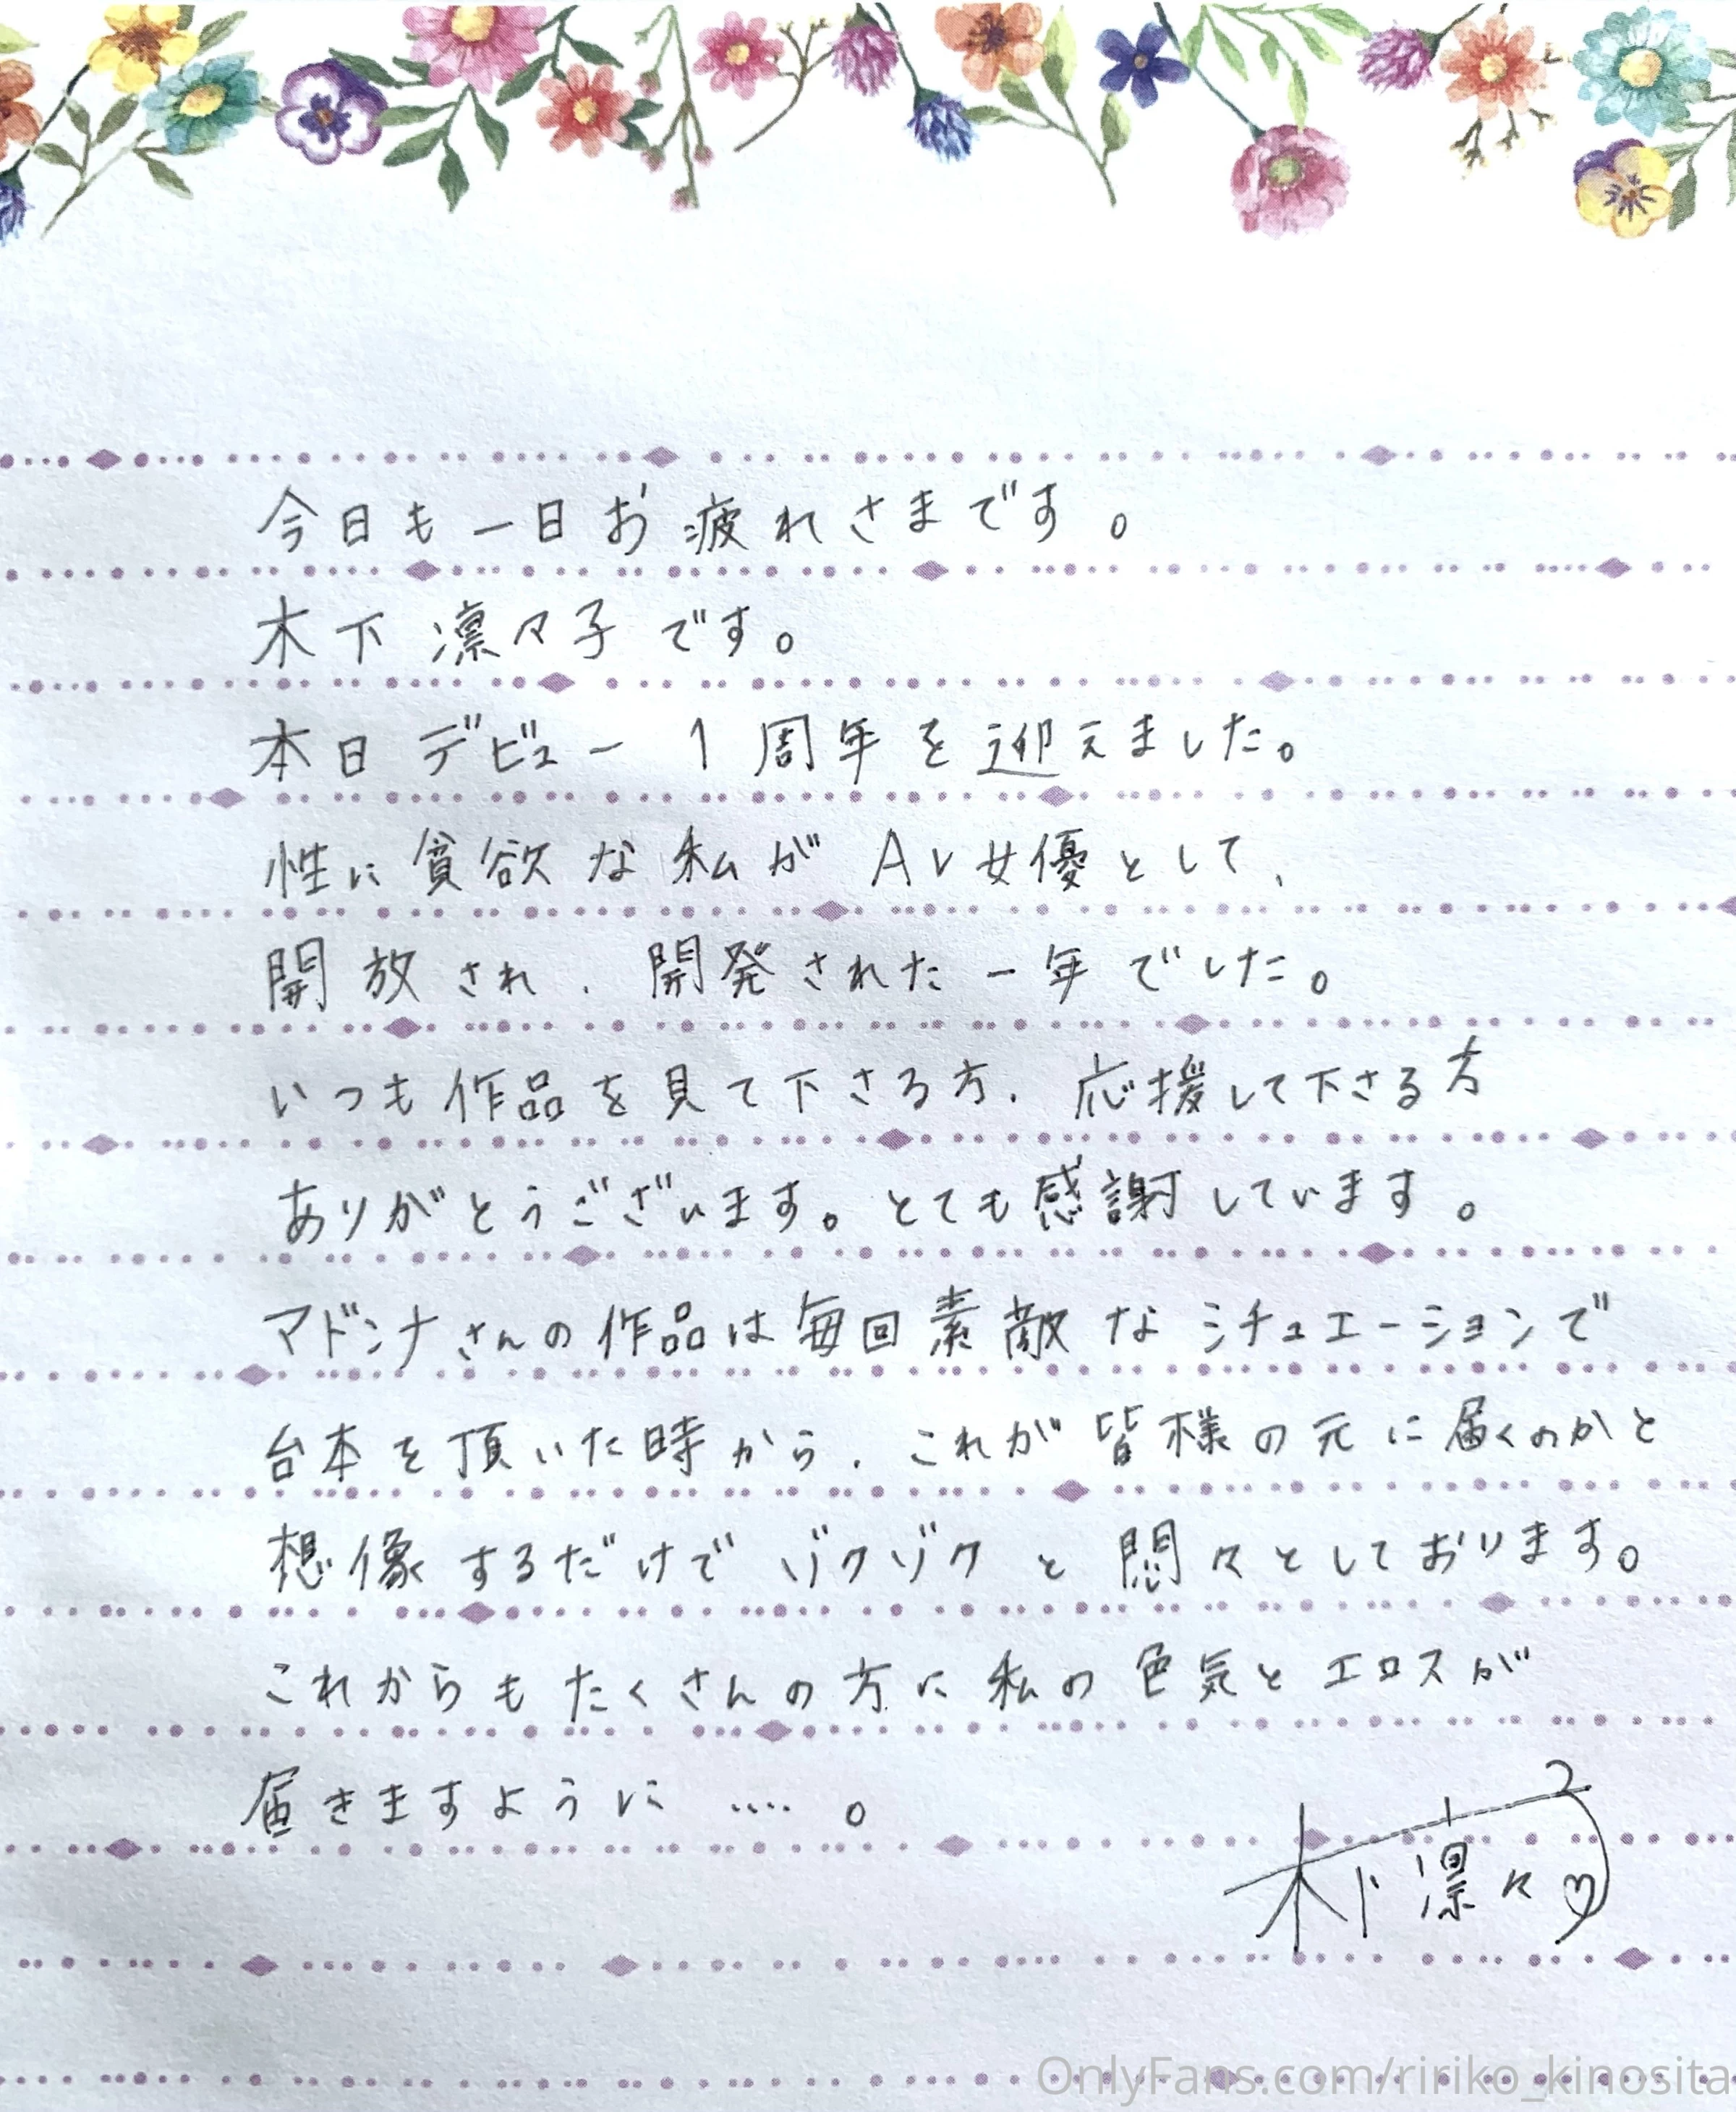 今日も一日お疲れさまです。
木下凛々子です。
本日デビュー1周年を迎えました。
性に貪欲な私がAV女優として、
開放され、開発された一年でした。
いつも作品を見て下さる方、応援して下さる方
ありがとうございます。とても感謝しています。
マドンナさんの作品は毎回素敵なシチュエーションで
台本を頂いた時から、これが皆様の元に届くのかと
想像するだけでゾクゾクと悶々としております。
これからもたくさんの方に私の色気とエロスが
届きますように….。
木下凛々子
OnlyFans.com/ririko_kinosita